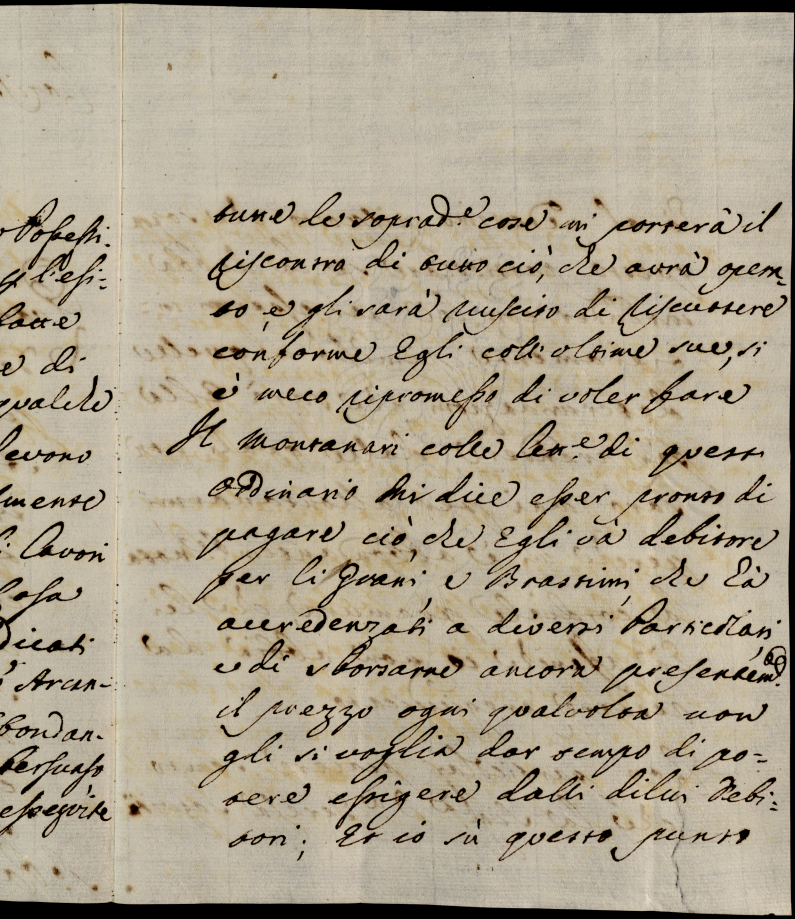 Possessi-
gl'esi-
latte
e di
qualche
levono
lmente
: Lavori
Casa
dicati
Arcan-
bondan-
persuaso
esseguite
tutte le soprad.e cose mi porterà il
riscontro di tutto ciò, che avrà opera-
to, e gli sarà riuscito di riscuotere
conforme Egli coll'ultime sue, si
è meco ripromesso di voler fare
Il Montanari colle lett.e di quest
ordinario mi dice esser pronto di
pagare ciò, che Egli và debitore
per li Grani, e Brastimi, che hà
accredenzati a diversi Particolari
e di sborsarne ancora presentem.
il prezzo ogni qualvolta non
gli si voglia dar tempo di po-
tere essigere dalli dilui Debi-
tori; Et io sù questo punto